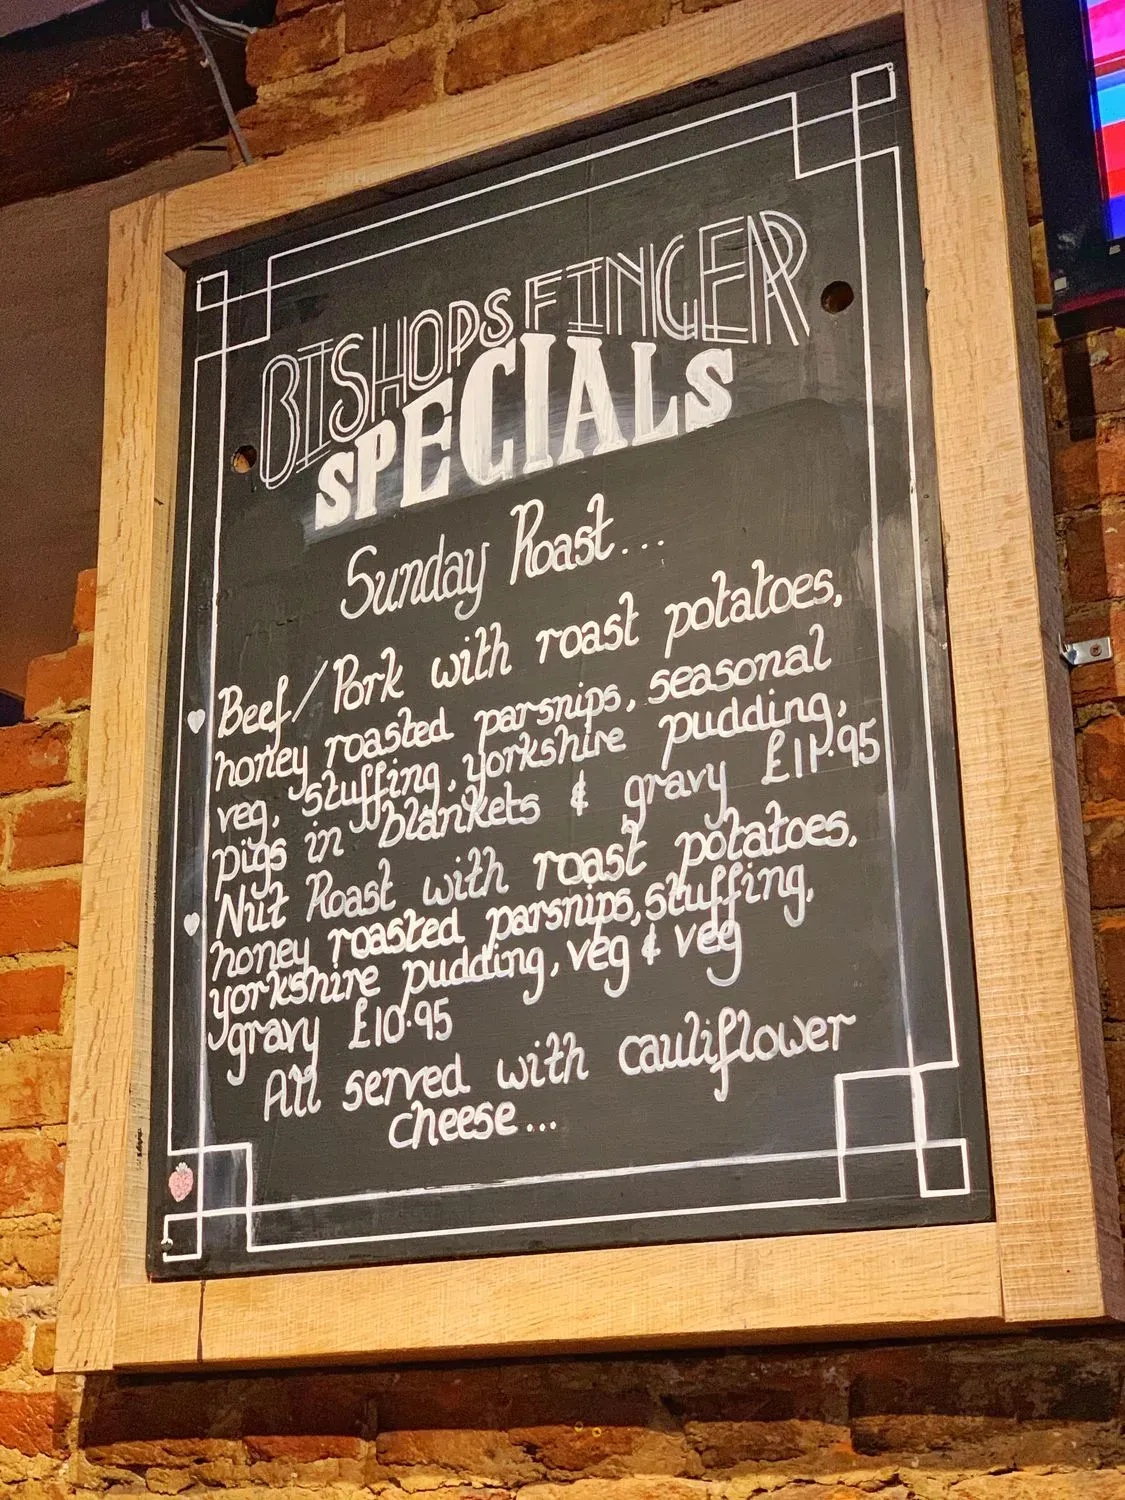 BISHOPS FINGER
SPECIALS
Sunday Roast...
Beef/Pork with roast potatoes,
honey roasted parsnips, seasonal
veg, stuffing, yorkshire pudding,
pigs in blankets & gravy
Nut Roast with roast potatoes,
honey roasted parsnips, stuffing,
yorkshire pudding, veg & veg
gravy £10.95
All served with cauliflower
cheese...